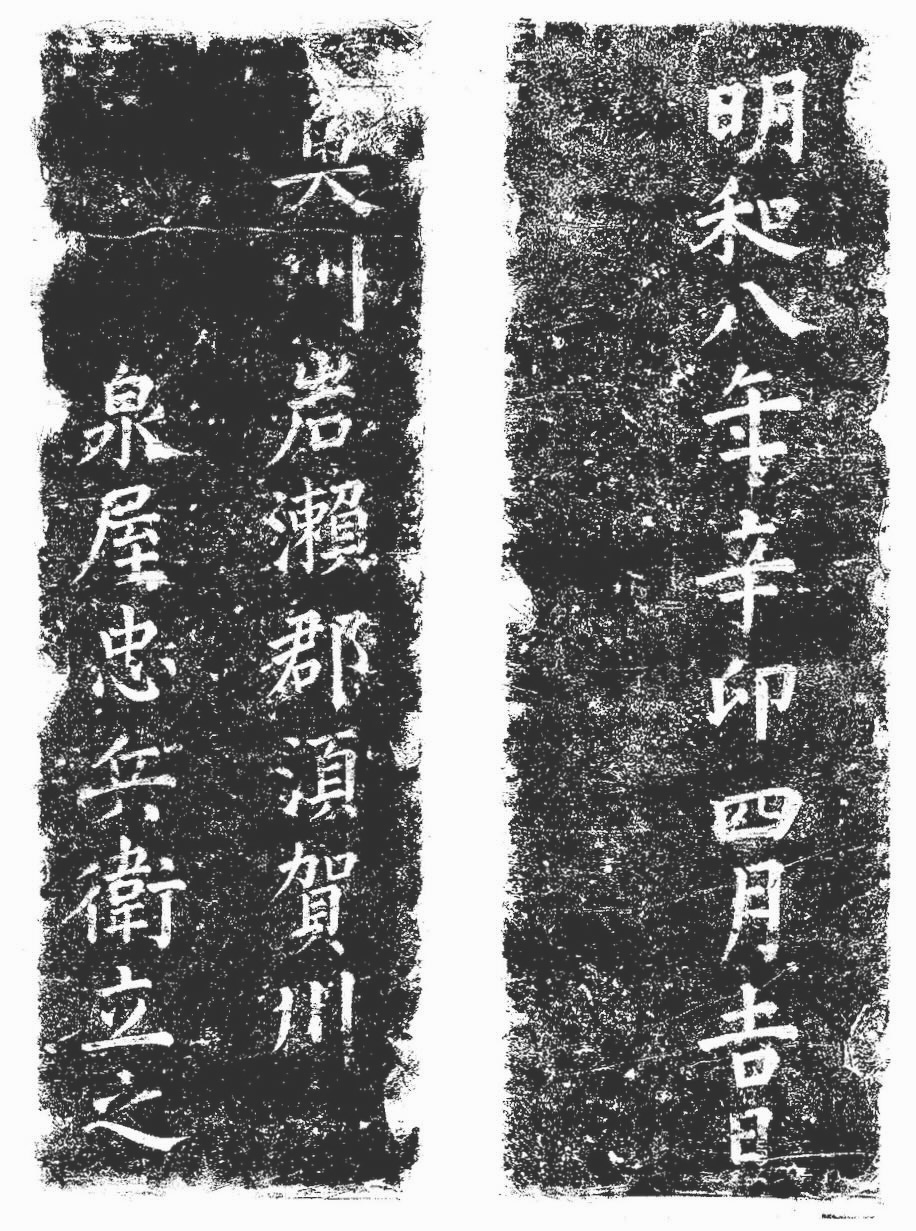 明和八年辛卯四月吉日
奥州岩瀬郡須賀川
泉屋忠兵衛立之